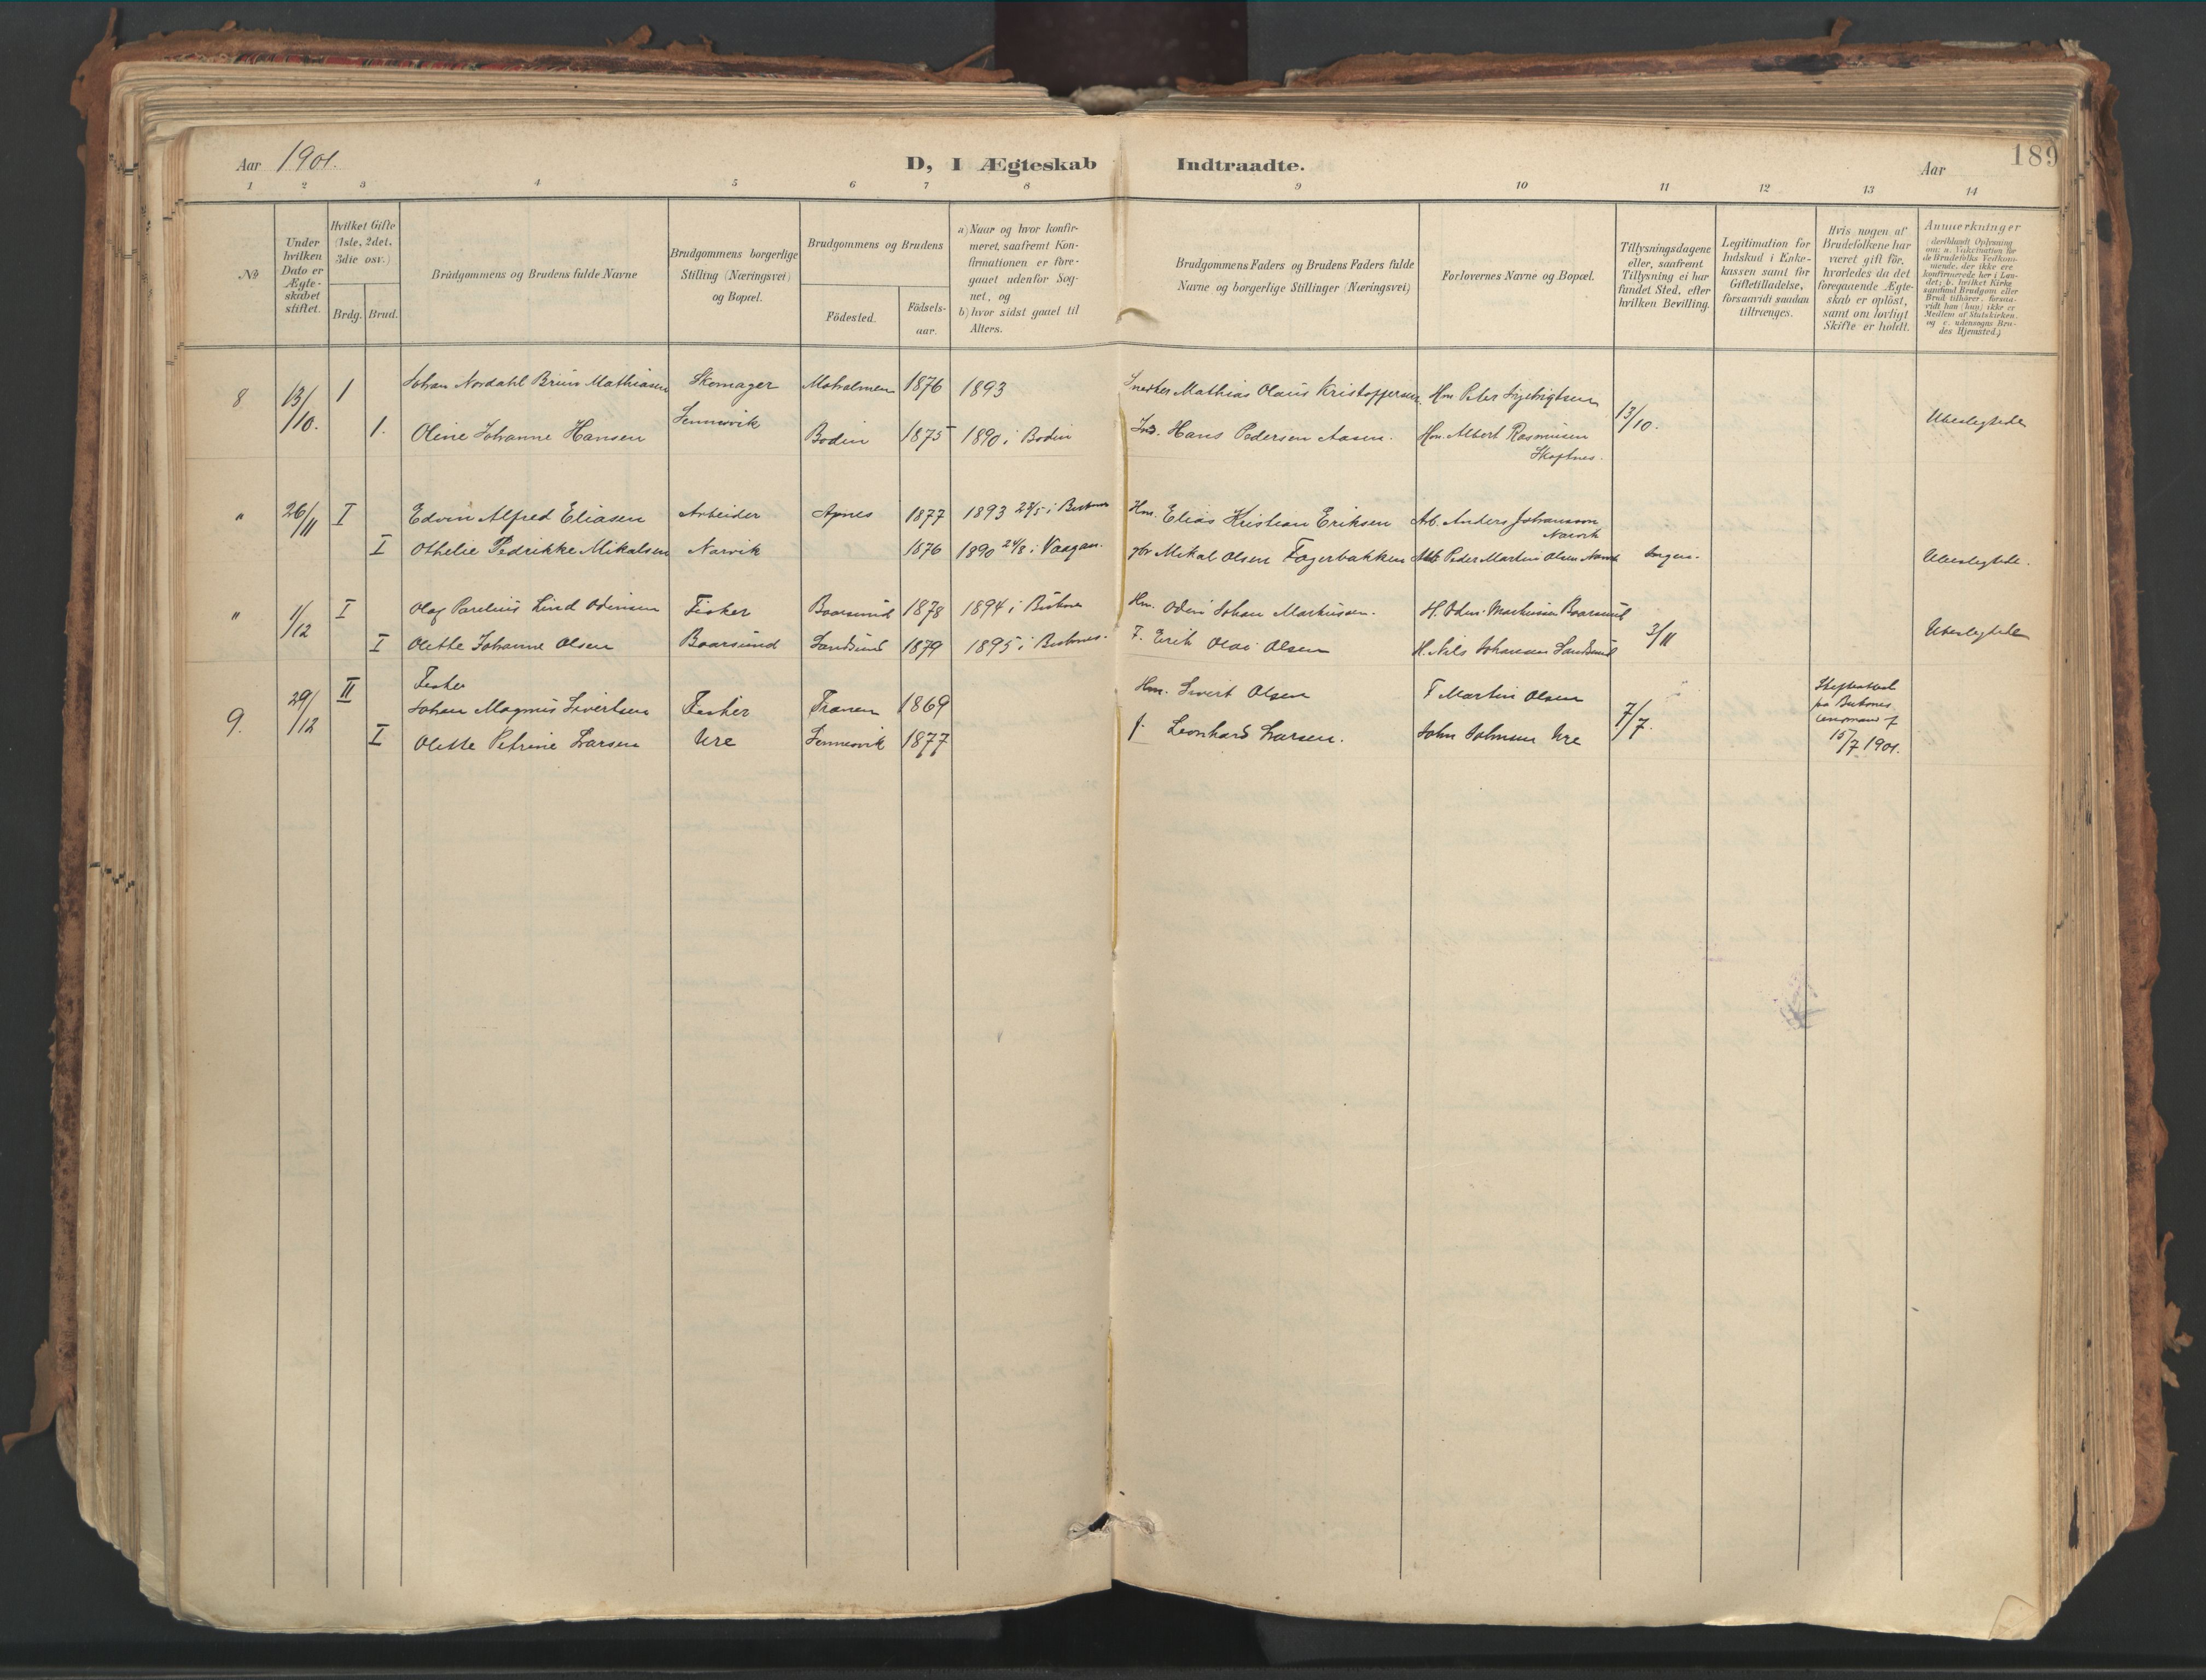 Aar 1901.
D, I Ægteskab Indtraadte.
Aar
189
1 2 3 4 5 6 7 8 9 10 11 12 13 14
№
Under hvilken Dato er Ægteskabet stiftet.
Hvilket Gifte (1ste, 2det, 3die osv.)
Brdg. Brud.
Brudgommens og Brudens fulde Navne
Brudgommens borgerlige Stilling (Næringsvei) og Bopæl.
Brudgommens og Brudens
Födested.
Födsels-aar.
a) Naar og hvor konfirmeret, saafremt Konfirmationen er foregaaet udenfor Sognet, og
b) hvor sidst gaaet til Alters.
Brudgommens Faders og Brudens Faders fulde Navne og borgerlige Stillinger (Næringsvei)
Forlovernes Navne og Bopæl.
Tillysningsdagene eller, saafremt Tillysning ei har fundet Sted, efter hvilken Bevilling.
Legitimation for Indskud i Enkekassen samt for Giftetilladelse, forsaavidt saadan tiltrænges.
Hvis nogen af Brudefolkene har været gift för, hvorledes da det foregaaende Ægteskab er oplöst, samt om lovligt Skifte er holdt.
Anmærkninger
(deriblandt Oplysning om: a. Vakcination for de Brudefolks Vedkommende, der ikke ere konfirmerede her i Landet; b. hvilket Kirkesamfund Brudgom eller Brud tilhörer, forsaavidt han (hun) ikke er Medlem af Statskirken, og c. udensogns Brudes Hjemsted.)
8 13/10. 1 Johan Nordahl Bruun Mathiasen Skomager Moholmen 1876 1893 Snedker Mathias Olaus Kristoffersen Hm Peter 13/10. Ubeslegtede
1. Oline Johanne Hansen Sennesvik Bodin 1875 1890 i Bodin Ind. Hans Pedersen Aasen. Hm. Albert Rasmussen
Skaftnes.
" 26/11 I Edvin Alfred Eliasen Arbeider 1877 1893 28/5 i Buksnes Hm. Elias Kristian Eriksen Arb. Anders Johansson
Narvik
I Othelie Pedrikke Mikalsen Narvik 1876 1890 24/8 i Vaagan. Mikal Olsen Fagerbakken Peder Martin Olsen Narvik Ingen. Ubeslegtede.
" 1/12 I Olaf Parelius Lind Odinsen Fisker Baarsund 1878 1894 i Buksnes Hm. Odin Johan Markussen. H. Odin Markussen Baarsund 3/11 Ubeslegtede
I Olette Johanne Olsen Baarsund Sandsund 1879 1895 i Buksnes. F. Erik Olai Olsen H. Nils Johansen Sandsund
Fisker
9. 29/12 II Johan Magnus Sivertsen Fisker Tranen 1869 Hm. Sivert Olsen F Martin Olsen 7/7. Skifteattest
fra Buksnes
lensmand f
15/7 1901.
I Olette Petrine Larsen Ure Sennesvik 1877 f. Leonhard Larsen. John Johnsen Ure